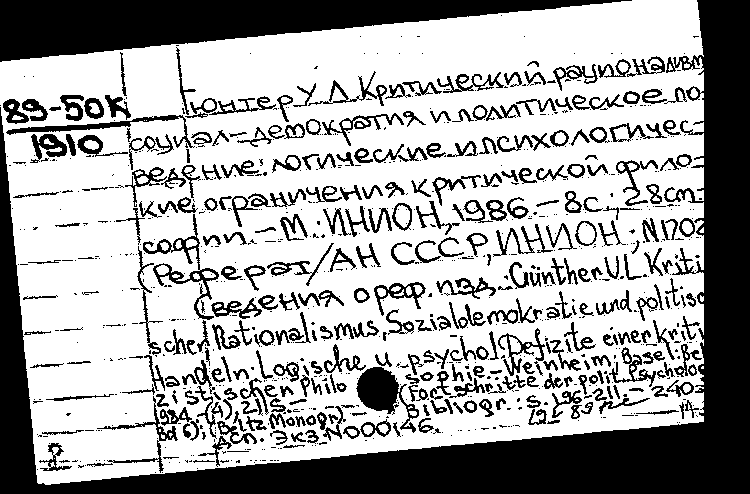 89-50К
1910
Гюнтер У Л. Критический рационализм
социал-демократия и политическое по-
ведение: логические и психологичес-
кие ограничения критической фило-
софии. – М.: ИНИОН, 1986. – 8с.; 28см. –
(Реферат/АН СССР, ИНИОН; N1702
(Сведения о реф. изд. Günther U.L. Kriti
scher Rationalismus, Sozialdemokratie und politisc
Handeln: Logische u. psychol. Defizite einer kriti
zistischen Philo sophie – Weinheim; Basel: Bel
1984. – (4), 211 S. – (Fortschritte der polit. Psycholog
Bd 6); (Beltz Monogr.). – Bibliogr.: S. 196-211. – 240=
Деп. Экз. N000146.